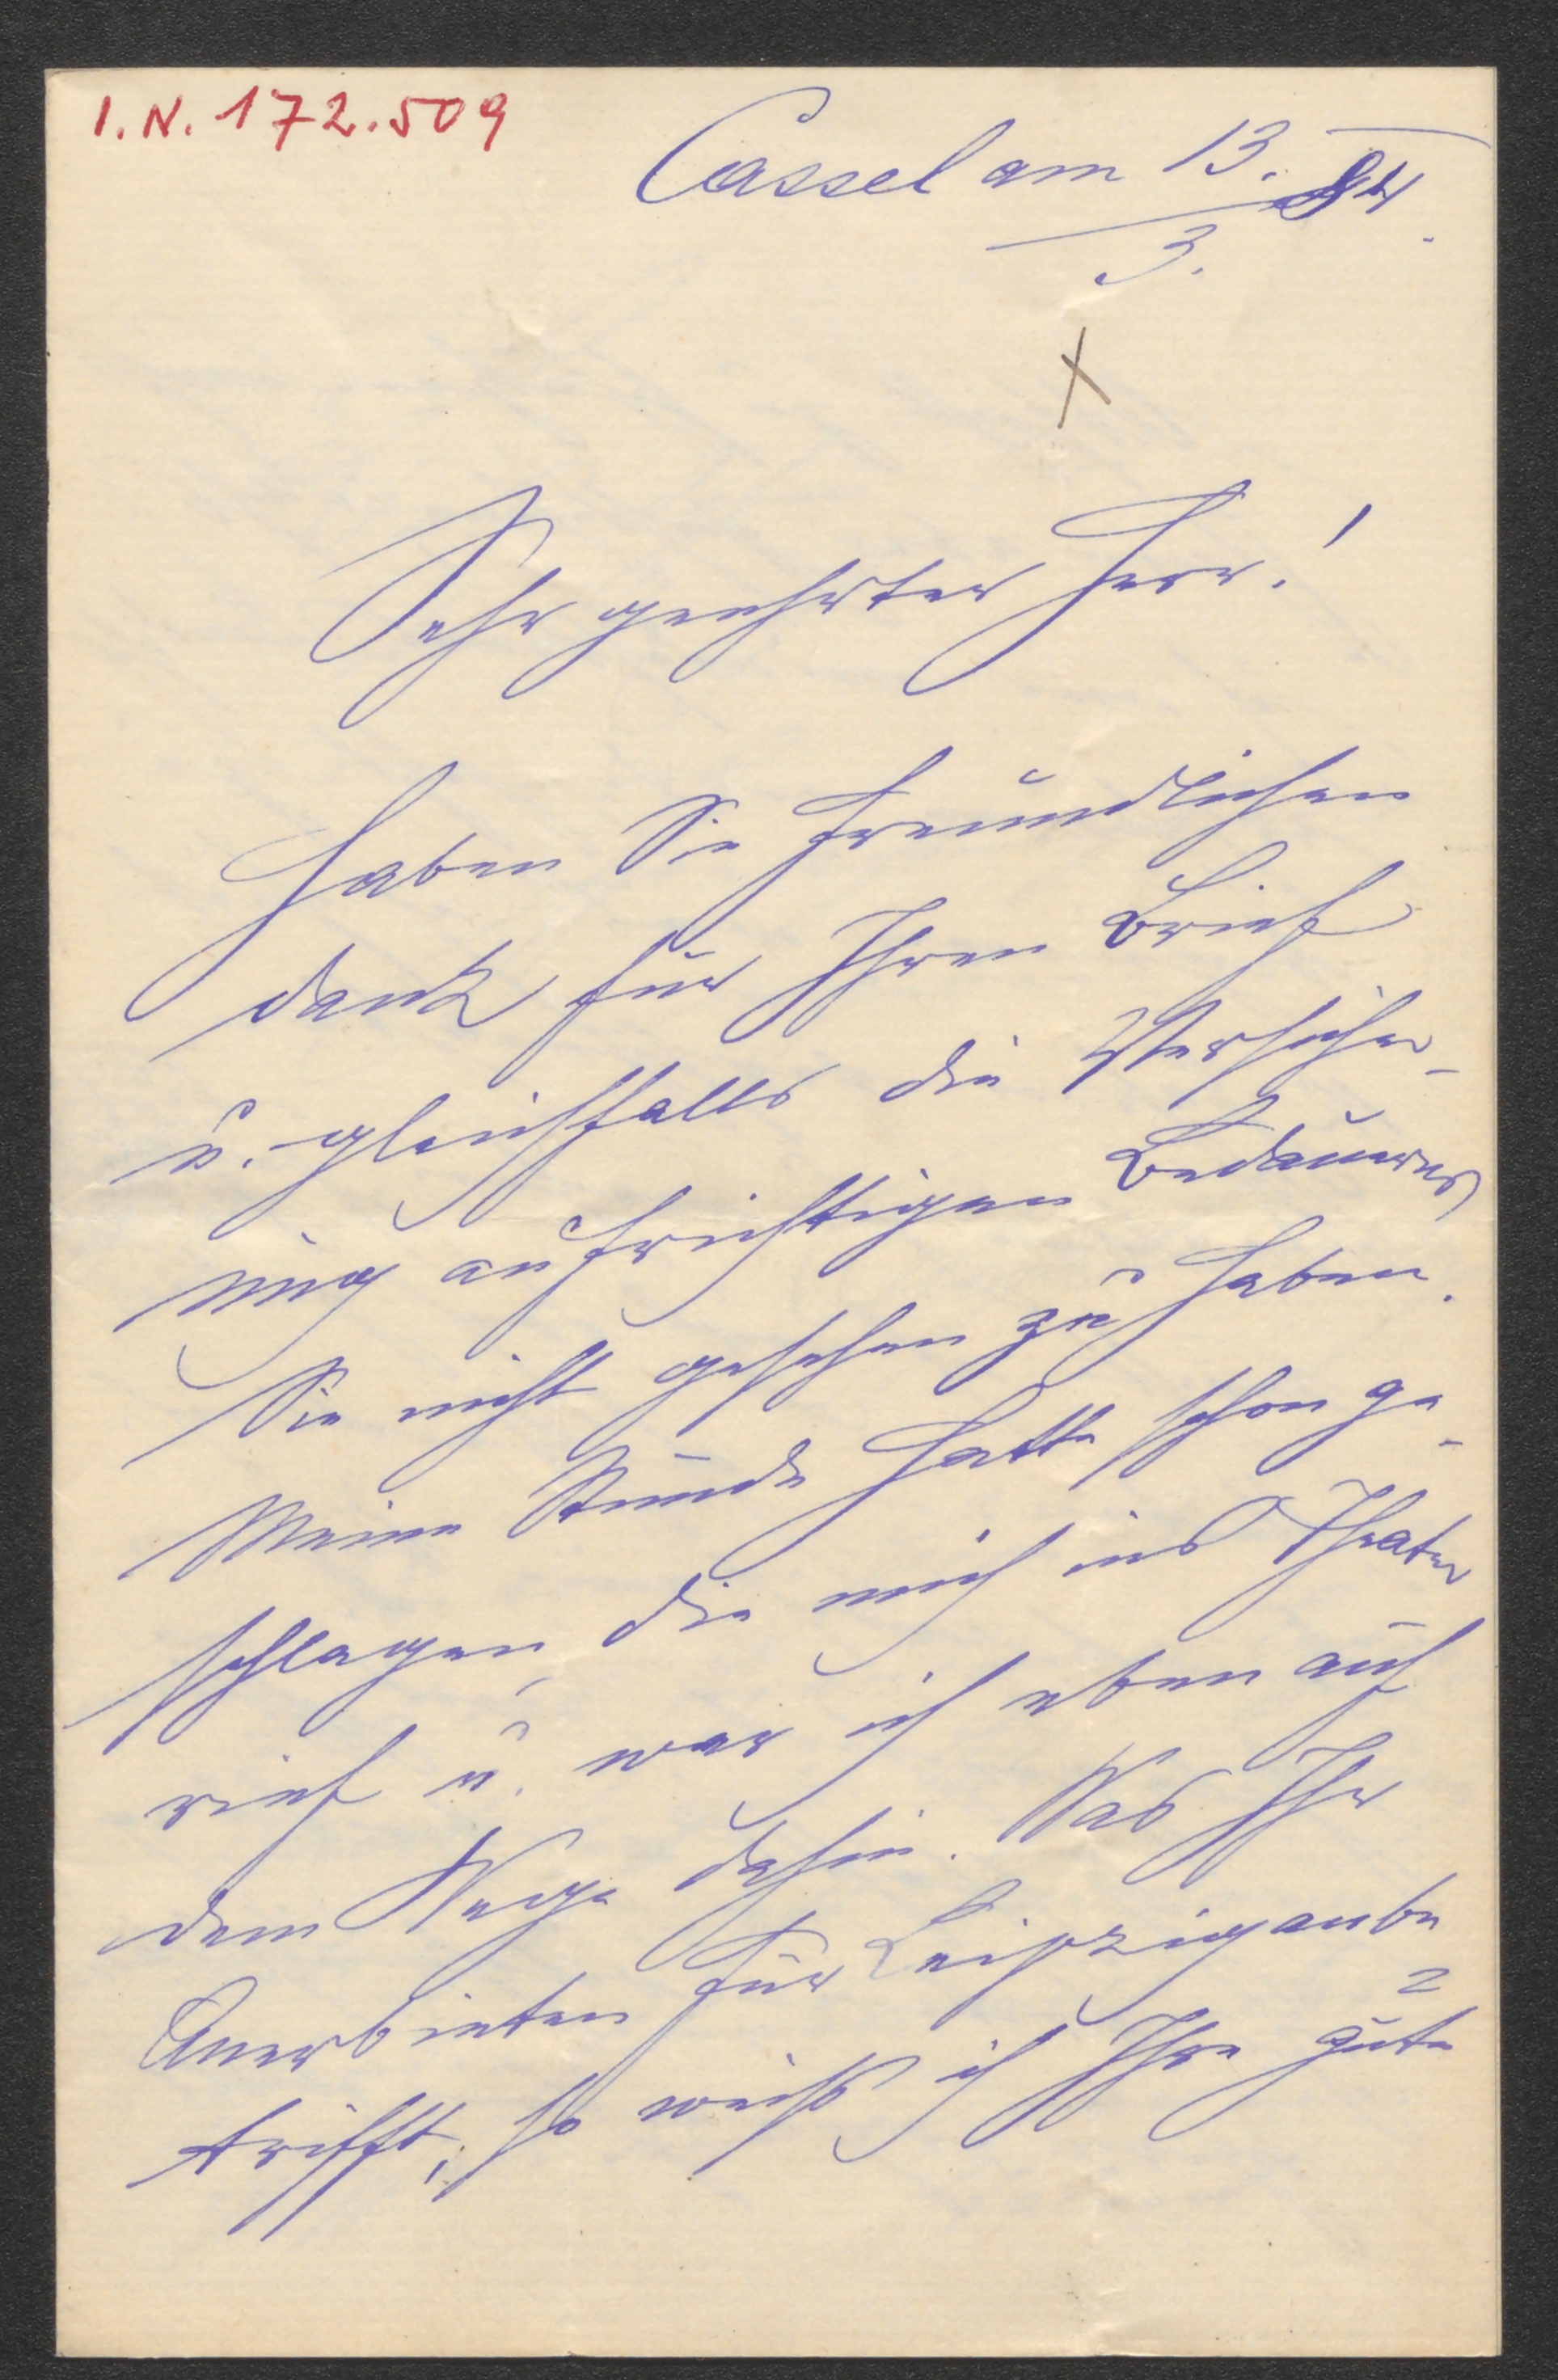 I.N. 172.509
Cassel am 13. 84.
3.
Sehr geehrter Herr!
Haben Sie freundlichen
Dank für Ihren Brief
u. gleichfalls die Versiche-
rung aufrichtigen Bedauerns
Sie nicht gesehen zu haben.
Meine Stunde hatte schon ge-
schlagen, die mich ins Theater
rief u. war ich eben auf
dem Wege dahin. Was Ihr
Anerbieten für Leipzig anbe
trifft, so weiß ich Ihre gute